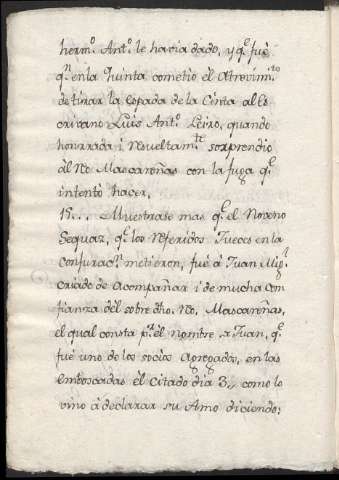 herm.º Ant.º le havia dado, y q.e fuè
q.n en la Quinta cometiò èl Atrevim.to
de tirar la Copada de la Cinta al Es
crivano Luis Ant.º Leiro, quando
honrrada i Resueltam.te sorprendio
àl Rº Mascareñas con la fuga q.e
intentò hacer.
15... Muestrase mas q.e èl Noveno
Sequaz, q.e los Referidos Jueces en la
Conjurac.n metieron, fuè à Juan Mig.l
Criado de Acompañar i de mucha con
fianza dèl sobre dho. Rº, Mascareñas,
el qual consta p.r èl nombre a Juan, q.e
fuè uno de los socios Agregados, en las
emboscadas èl Citado dia 3., como lo
vino à declarar su Amo diciendo: